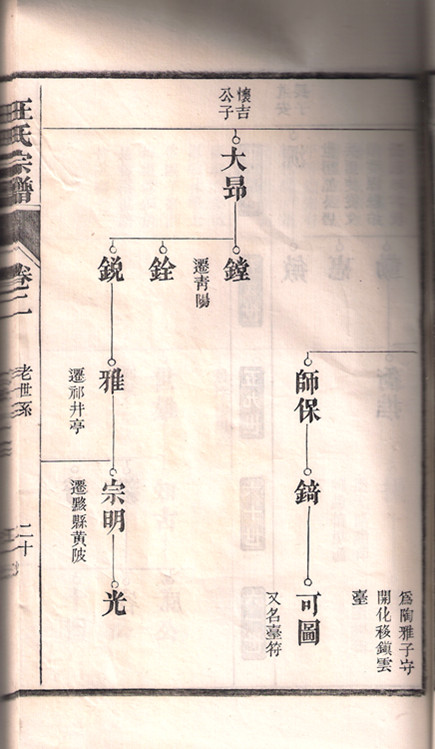 懷吉
公子
大昴
鏜
遷青陽
銓
鋭
師保
雅
遷祁井亭
錡
宗明
遷黟縣黃陂
可圖
為陶雅子守
開化移鎮雲
臺
又名臺符
光
汪氏宗譜
卷二
老世系
二十